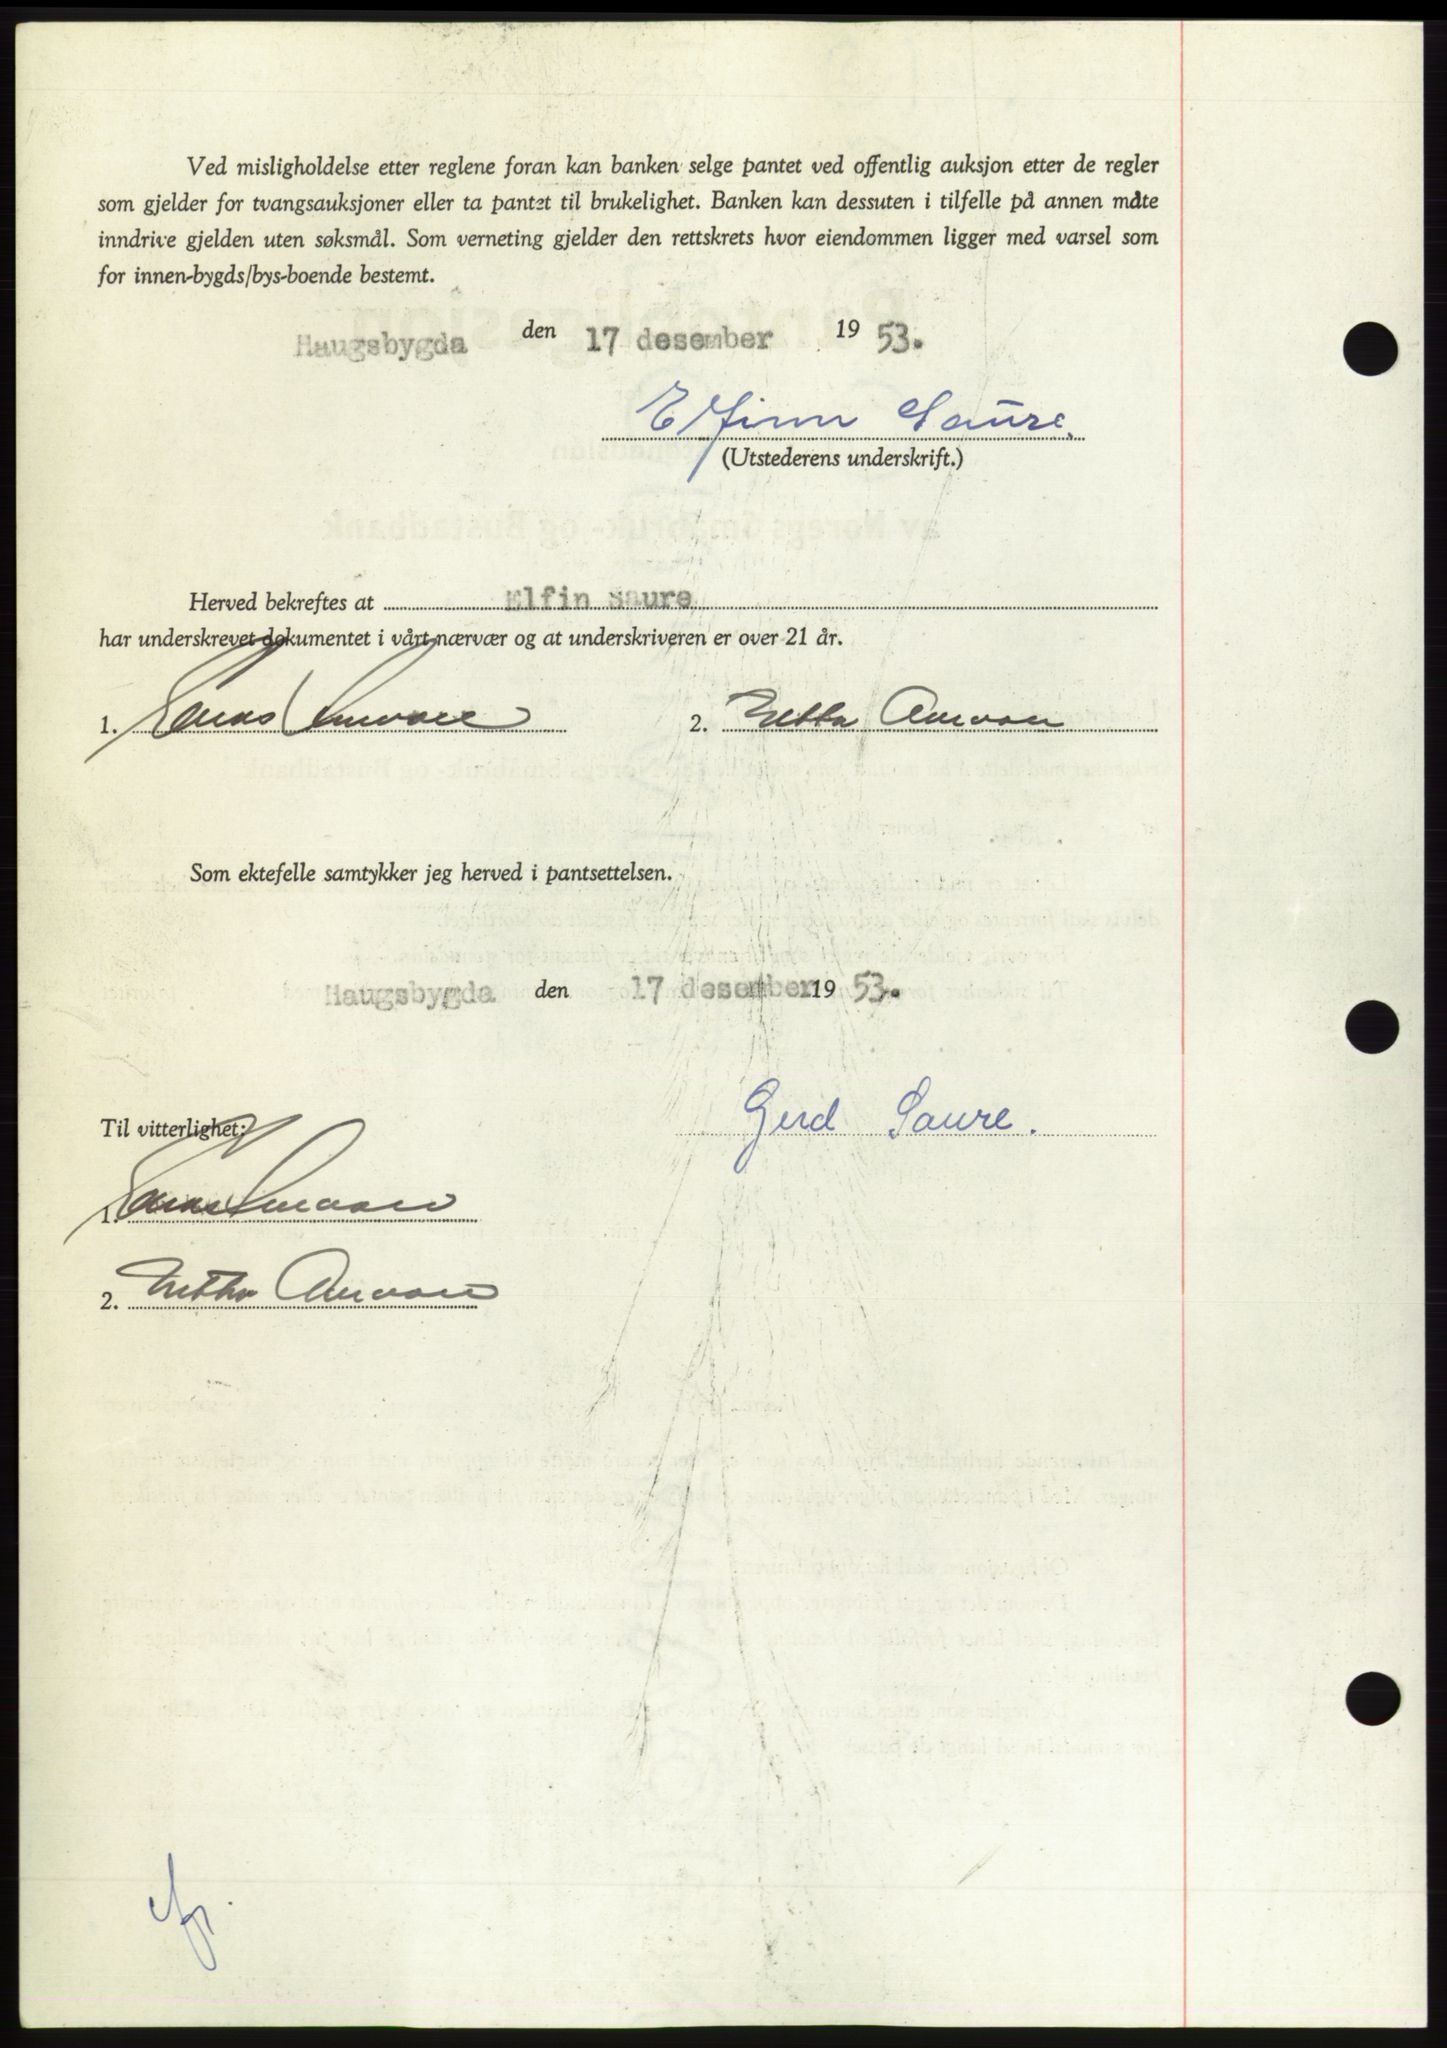 Ved misligholdelse etter reglene foran kan banken selge pantet ved offentlig auksjon etter de regler
som gjelder for tvangsauksjoner eller ta pantet til brukelighet. Banken kan dessuten i tilfelle på annen måte
inndrive gjelden uten søksmål. Som verneting gjelder den rettskrets hvor eiendommen ligger med varsel som
for innen-bygds/bys-boende bestemt.
Haugsbygda den 17 desember 1953.
Elfinn Saure.
(Utstederens underskrift.)
Herved bekreftes at Elfin Saure
har underskrevet dokumentet i vårt nærvær og at underskriveren er over 21 år.
1. 2.
Som ektefelle samtykker jeg herved i pantsettelsen.
Haugsbygda den 17 desember 1953.
Gerd Saure.
Til vitterlighet:
1.
2.